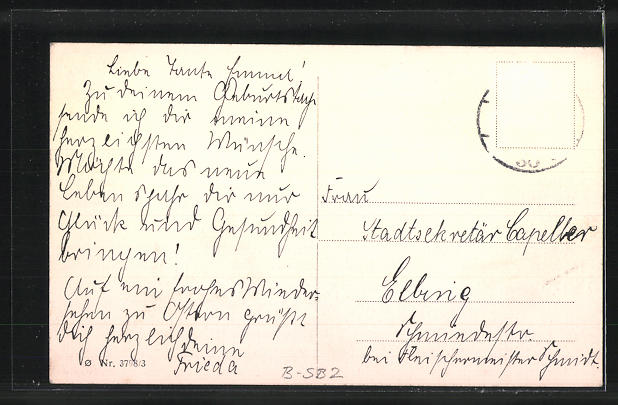 Liebe Tante Emma!
Zu deinem Geburtstage
sende ich dir meine
herzlichsten Wünsche.
Möchte das neue
Lebensjahr dir nur
Glück und Gesundheit
bringen!
Auf ein frohes Wieder-
sehen zu Ostern grüßt
dich herzlich deine
Frieda
Frau
Stadtsekretär Capeller
Elbing
Schmiedestr.
bei Fleischermeister Schmidt.
Ø Nr. 3798/3
B-SB2